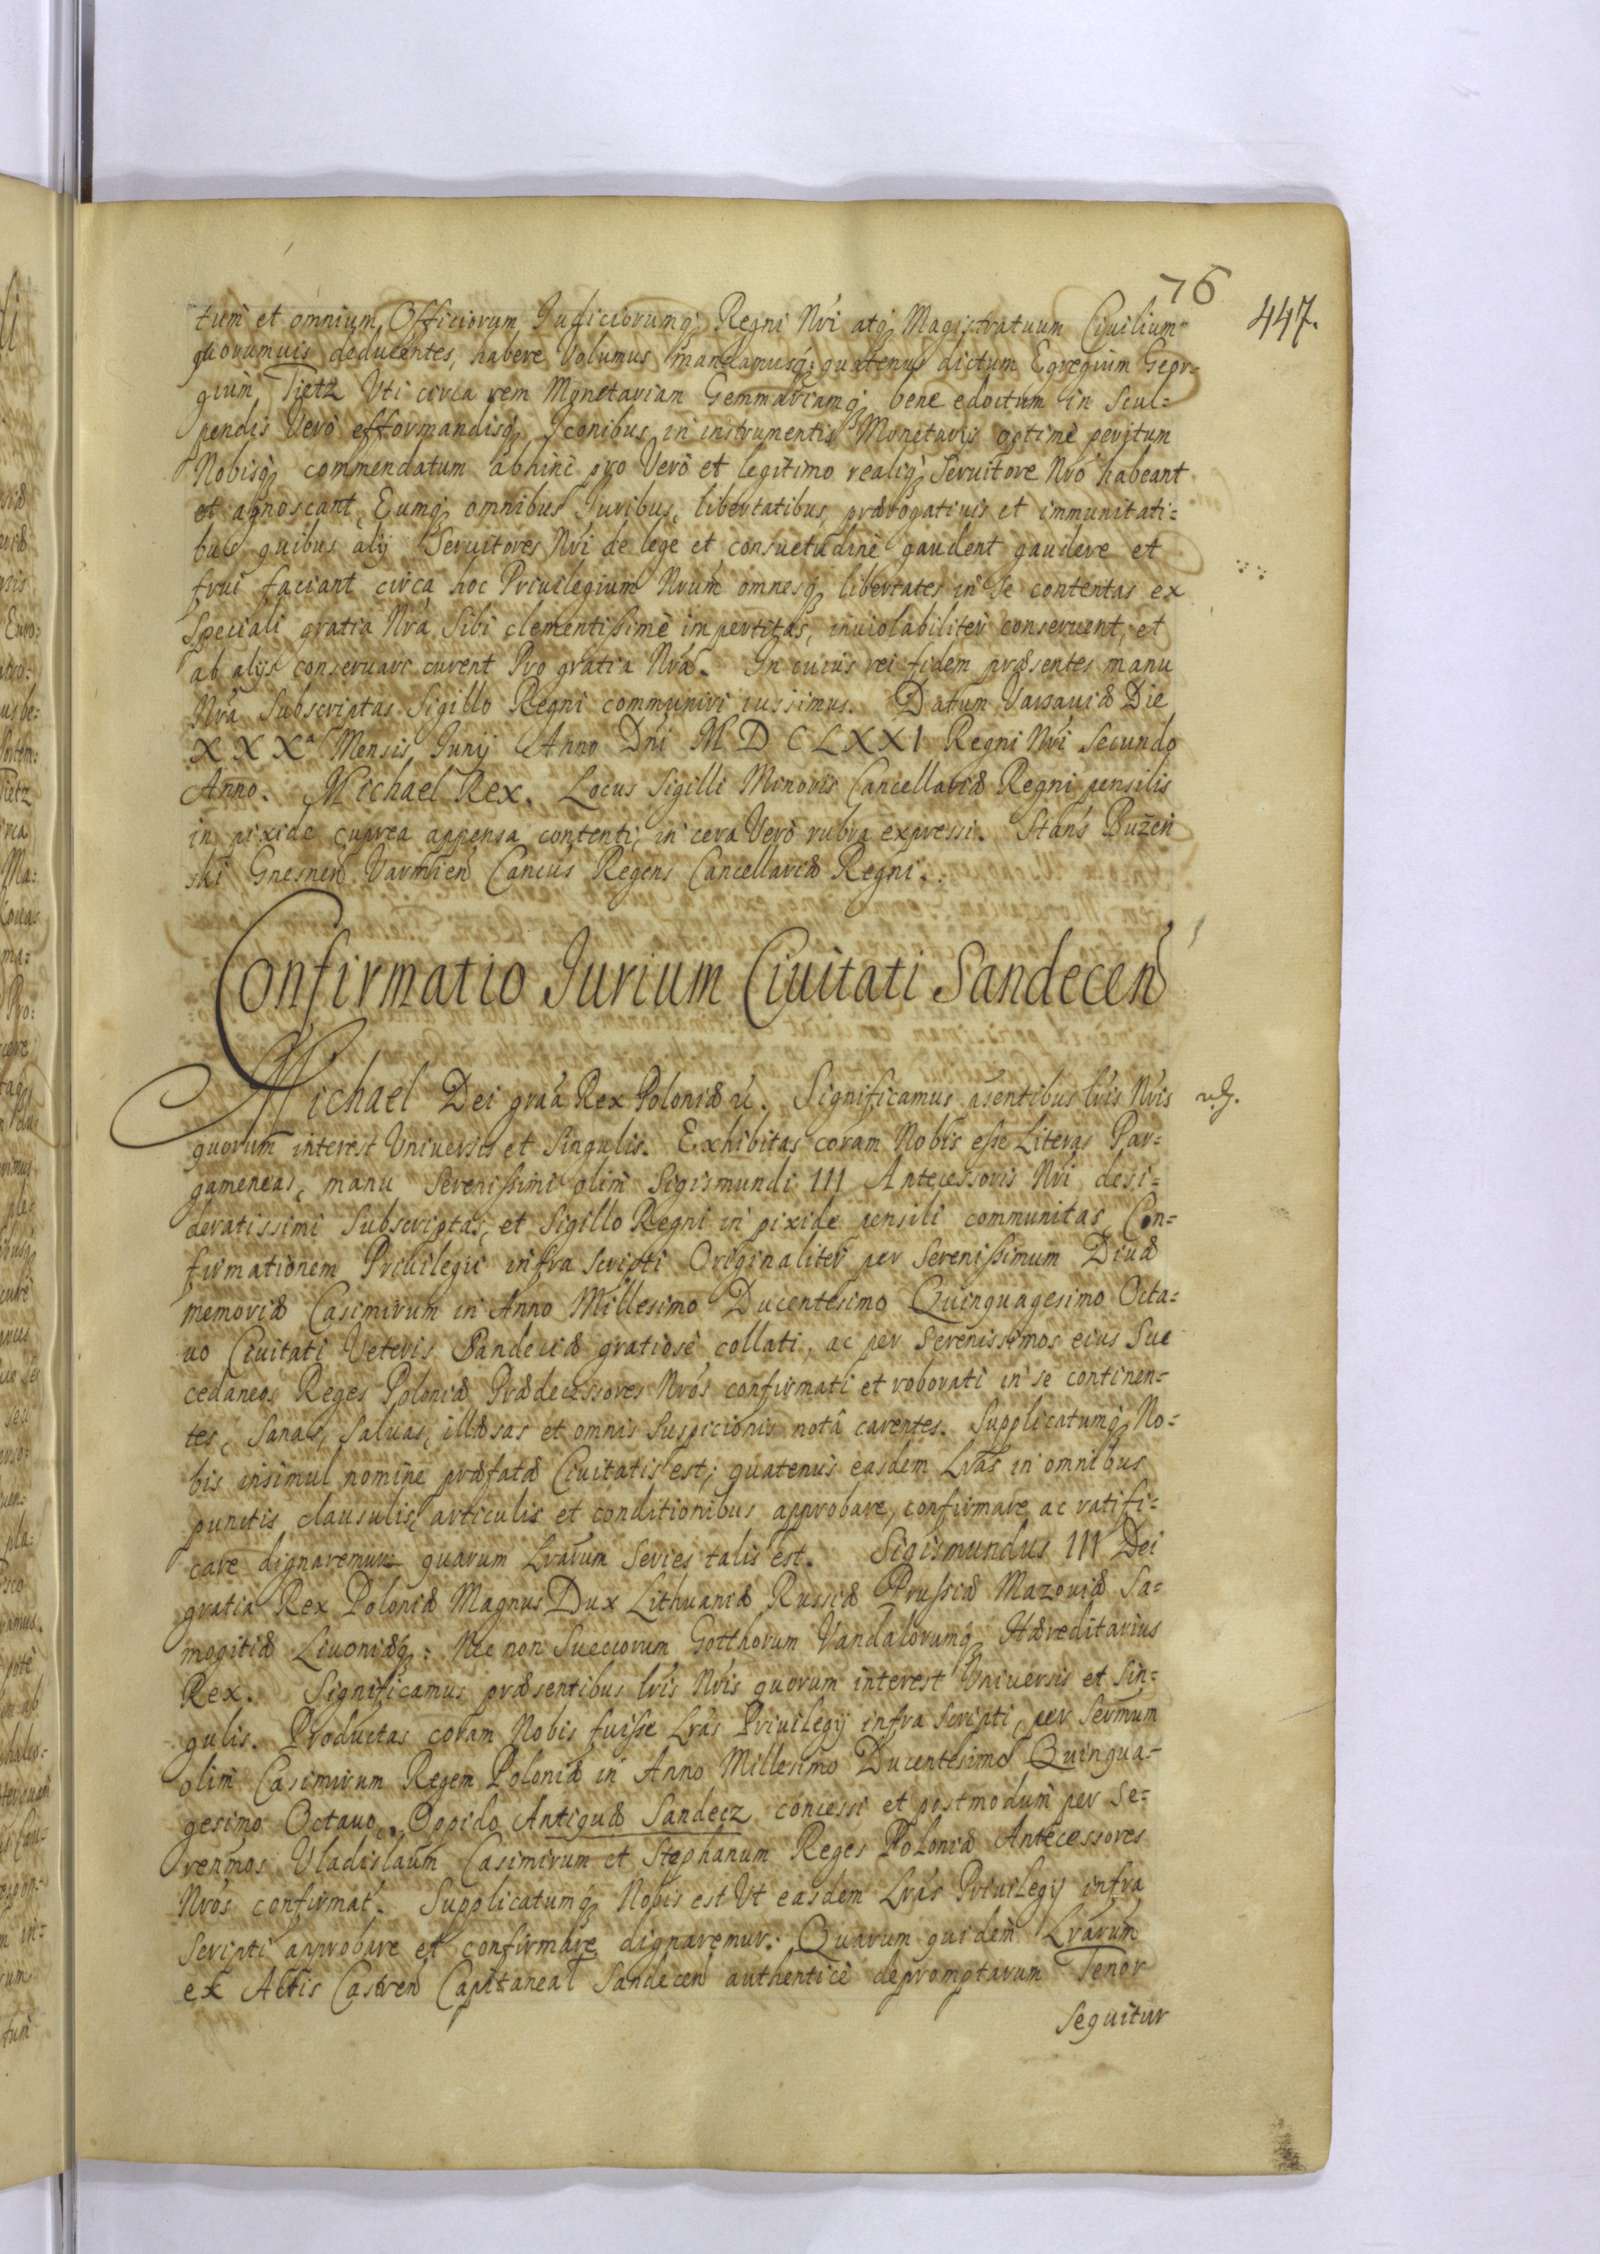 76
447.
tum et omnium Officiorum Judiciorumq; Regni Nri atq; Magistratuum Ciuilium
quorumuis deducentes, habere Volumus mandamusq; quatenus dictum Egregium Geor-
gium Tietz Vti circa rem Monetariam Gemmariamq; bene edoctum in Scul=
pendis Verò efformandisq; Iconibus in instrumentis Monetarijs optimè peritum
Nobisq; commendatum abhinc pro Vero et legitimo realiq; Seruitore Nro habeant
et agnoscant, Eumq; omnibus Juribus, libertatibus, prærogatiuis et immunitati=
bus quibus alij Seruitores Nri de lege et consuetudine gaudent gaudere et
frui faciant circa hoc Priuilegium Nrum omnesq; libertates in se contentas ex
Speciali gratia Nra Sibi clementissimè impertitas, inuiolabiliter conseruent, et
ab alijs conseruari curent Pro gratia Nra. In cuius rei fidem præsentes manu
Nra Subscriptas Sigillo Regni communiri iussimus. Datum Varsauiæ Die
XXXa Mensis Junij Anno Dni MDCLXXI Regni Nri Secundo
Anno. Michael Rex. Locus Sigilli Minoris Cancellariæ Regni pensilis
in pixide cuprea appensa contenti, in cera Vero rubra expressi. Stan's Bużen
ski Gnesnen Varmien Cancus Regens Cancellariæ Regni.
Confirmatio Jurium Ciuitati Sandecen
Michael Dei graa Rex Poloniæ &. Significamus asentibus lris Nris
quorum interest Vniuersis et Singulis. Exhibitas coram Nobis esse Literas Par=
gameneas, manu Serenissimi olim Sigismundi III Antecessoris Nri desi=
deratissimi Subscriptas, et Sigillo Regni in pixide pensili communitas, Con=
firmationem Priuilegii infra scripti Originaliter per Serenissimum Diuæ
memoriæ Casimirum in Anno Millesimo Ducentesimo Quinquagesimo Octa=
uo Ciuitati Veteris Sandeciæ gratiosè collati, ac per Serenissimos eius Suc
cedaneos Reges Poloniæ Prædecessores Nros confirmati et roborati in se continen=
tes, Sanas, Saluas, illæsas et omnis Suspicionis notâ carentes. Supplicatumq; No=
bis insimul nomine præfatæ Ciuitatis est, quatenus easdem Lras in omnibus
punctis clausulis articulis et conditionibus approbare, confirmare ac ratifi=
care dignaremur quarum Lrarum Series talis est. Sigismundus III Dei
gratia Rex Poloniæ Magnus Dux Lithuaniæ Russiæ Prussiæ Mazouiæ Sa=
mogitiæ Liuoniæq; Nec non Sueccorum Gotthorum Vandalorumq; Hæreditarius
Rex. Significamus præsentibus lris Nris quorum interest Vniuersis et Sin=
gulis. Productas coram Nobis fuisse Lras Priuilegij infra scripti, per Sermum
olim Casimirum Regem Poloniæ in Anno Millesimo Ducentesimo Quinqua=
gesimo Octauo, Oppido Antiquæ Sandecz concessi et postmodum per Se=
renmos Vladislaum Casimirum et Stephanum Reges Poloniæ Antecessores
Nros confirmat. Supplicatumq; Nobis est Vt easdem Lras Priuilegij infra
scripti approbare et confirmare dignaremur. Quarum quidem Lrarum
ex Actis Castren Capitaneal Sandecen authenticè depromptarum Tenor
sequitur